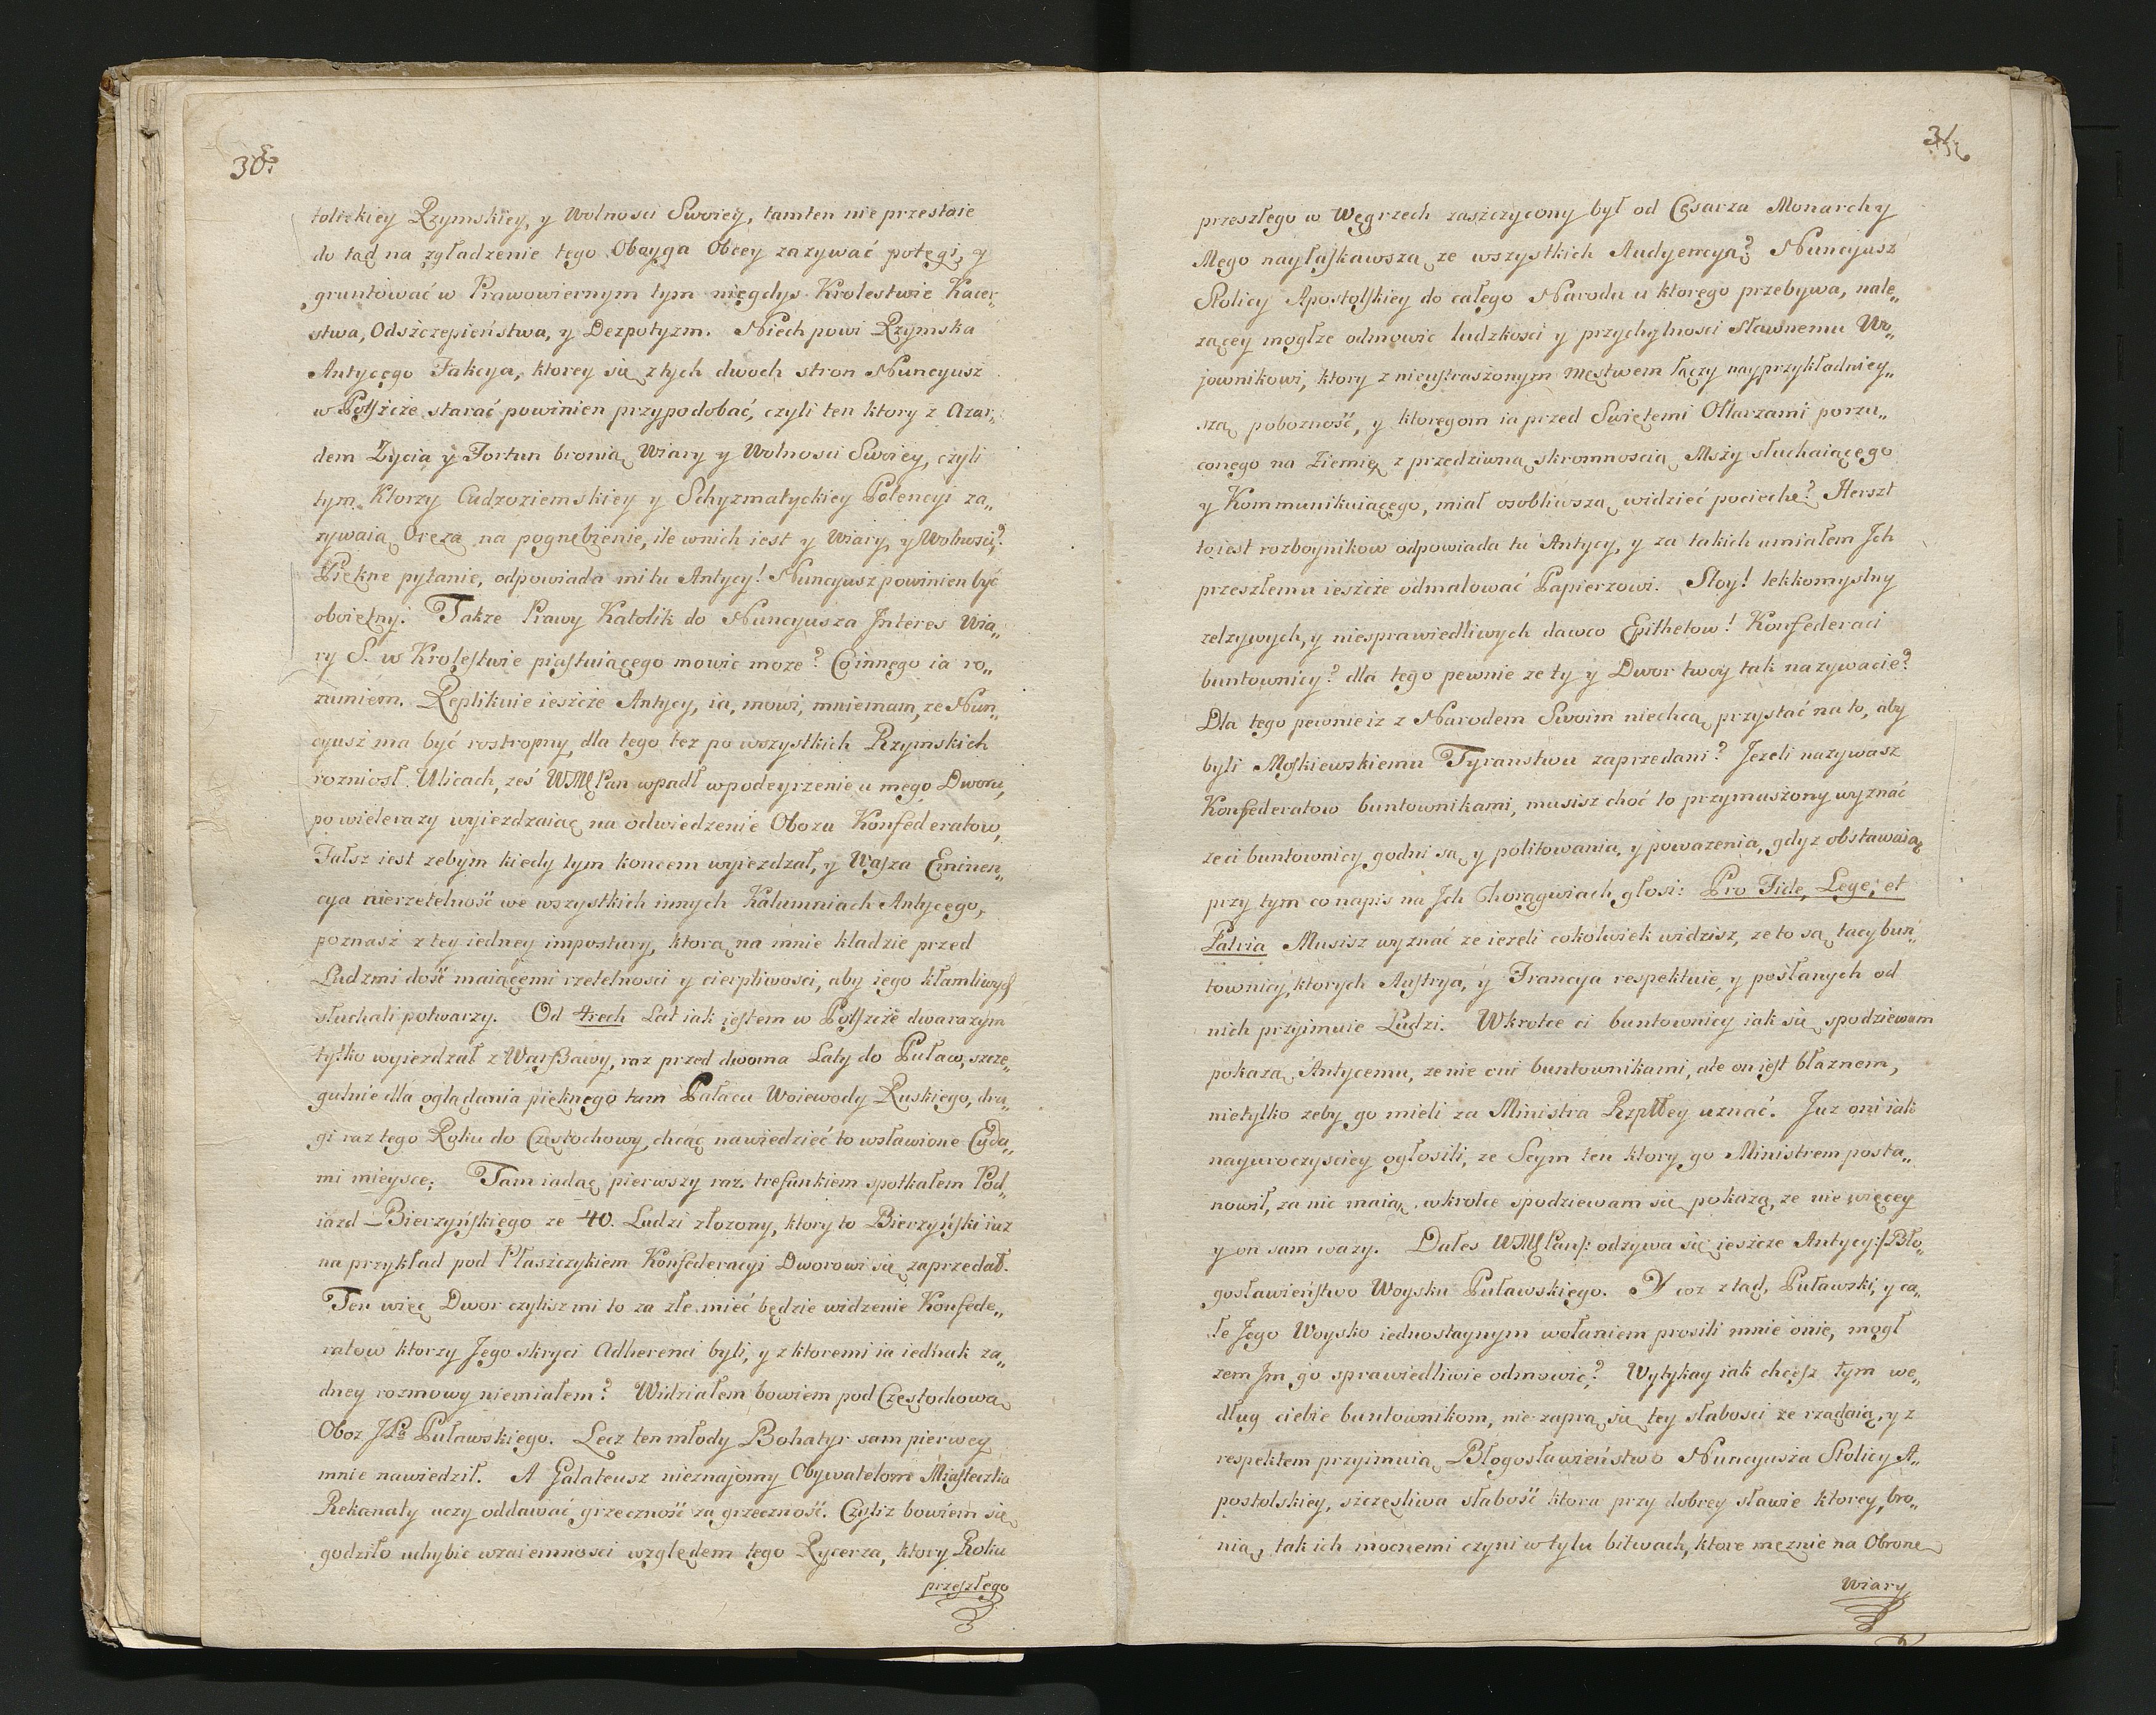 30.
tolickiey Rzymskiey, y Wolnosci Swoiey, tamten nie przestaie
do tąd na zgładzenie tego Oboyga Obcey zazywać potęgi, y
gruntować w Prawowiernym tym niegdys Krolestwie Kacer„
stwa, Odszczepieństwa, y Dezpotyzm. Niech powi Rzymska
Antycego Fakcya, ktorey się z tych dwoch stron Nuncyusz
w Polszcze starać powinien przypodobać, czyli ten ktory z Azar„
dem Zycia y Fortun bronią Wiary y Wolnosci Swoiey, czyli
tym. Ktorzy Cudzoziemskiey y Schyzmatyckiey Potencyi za„
zywaią Oręza na pognębienie, ile wnich iest y Wiary, y Wolnosci?
Piękne pytanie, odpowiada mi tu Antycy! Nuncyusz powinien być
oboiętny. Takze Prawy Katolik do Nuncyusza Interes Wia„
ry S. w Krolestwie piastuiącego mowic moze? Co innego ia ro„
zumiem. Replikuie ieszcze Antycy, ia, mowi, mniemam, ze Nun„
cyusz ma być rostropny, dla tego tez po wszystkich Rzymskich
rozniosł Ulicach, ześ WMPan wpadł w podeyrzenie u mego Dworu,
po wielerazy wyiezdzaiąc na odwiedzenie Obozu Konfederatow,
Fałsz iest zebym kiedy tym koncem wyiezdzał, y Wasza Eminen„
cya nierzetelność we wszystkich innych Kalumniach Antycego,
poznasz z tey iedney impostury, ktorą na mnie kladzie przed
Ludzmi dość maiącemi rzetelnosci y cierpliwosci, aby iego kłamliwych
słuchali potwarzy. Od trech Lat iak iestem w Polszcze dwarazym
tylko wyiezdzał z Warszawy, raz przed dwoma Laty do Puław, szcze„
gulnie dla oglądania pięknego tam Pałacu Woiewody Ruskiego, dru„
gi raz tego Roku do Częstochowy, chcąc nawiedzieć to wsławione Cuda„
mi mieysce; Tam iadąc pierwszy raz trefunkiem spotkałem Pod„
iazd Bierzyńskiego ze 40. Ludzi złozony, ktory to Bierzyński iuz
na przykład pod Płaszczykiem Konfederacyi Dworowi się zaprzedał.
Ten więc Dwor czylisz mi to za złe mieć będzie widzenie Konfede„
ratow ktorzy Jego skryci Adherenci byli, y z ktoremi ia iednak za„
dney rozmowy niemiałem? Widziałem bowiem pod Częstochową
Oboz JP. Puławskiego. Lecz ten młody Bohatyr sam pierwey
mnie nawiedził. A Galateusz nieznajomy Obywatelom Miasteczka
Rekanaty uczy oddawać grzeczność za grzeczność. Czyliz bowiem się
godziło uchybic wzaiemnosci względem tego Rycerza, ktory Roku
przeszłego
31
przeszłego w Węgrzech zaszczycony był od Cesarza Monarchy
Mego nayłaskawszą ze wszystkich Audyencyą? Nuncyusz
Stolicy Apostolskiey do całego Narodu u ktorego przebywa, nale„
zącey mogłze odmowic ludzkosci y przychylnosci sławnemu Wo„
jownikowi, ktory z nieustraszonym męstwem łączy nayprzykładniey„
szą poboznosć, y ktoregom ia przed Swiętemi Ołtarzami porzu„
conego na Ziemię z przedziwną skromnoscią Mszy słuchaiącego
y Kommunikuiącego, miał osobliwszą widzieć pociechę? Herszt
to iest rozboynikow odpowiada tu Antycy, y za takich umiałem Jch
przeszłemu ieszcze odmalować Papierzowi. Stoy! lekkomyslny
zelzywych, y niesprawiedliwych dawco Epithetow! Konfederaci
buntownicy? dla tego pewnie ze ty y Dwor twoy tak nazywacie?
Dla tego pewnie iz z Narodem Swoim niechcą przystać na to, aby
byli Moskiewskiemu Tyranstwu zaprzedani? Jezeli nazywasz
Konfederatow buntownikami, musisz choć to przymuszony wyznać
ze ci buntownicy godni są y politowania, y powazenia, gdyz obstawaią
przy tym co napis na Jch Chorągwiach głosi: Pro Fide, Lege, et
Patria Musisz wyznać ze iezeli cokolwiek widzisz, ze to są tacy bun„
townicy, ktorych Austrya, y Francya respektuie, y posłanych od
nich przyimuie Ludzi. Wkrotce ci buntownicy iak się spodziewam
pokazą Antycemu, ze nie oni buntownikami, ale on iest błaznem,
nietylko zeby go mieli za Ministra Rzpltey uznać. Juz oni iak
nayuroczysciey ogłosili, ze Seym ten ktory go Ministrem posta„
nowił, za nic maią, wkrotce spodziewam się pokazą, ze nie więcey
y on sam wazy. Dałes WMPan /: odzywa się ieszcze Antycy :/ Bło„
gosławieństwo Woysku Puławskiego. Y coz ztąd, Puławski, y ca„
łe Jego Woysko iednostaynym wołaniem prosili mnie onie, mogł
zem Jm go sprawiedliwie odmowic? Wytykay iak chcesz tym we„
dług ciebie buntownikom, nie zaprą się tey słabosci ze rządaią, y z
respektem przyimuią Błogosławieństwo Nuncyusza Stolicy A„
postolskiey, szczęsliwa słabość ktora przy dobrey sławie ktorey bro„
nią, tak ich mocnemi czyni w tylu bitwach, ktore męznie na Obronę
Wiary